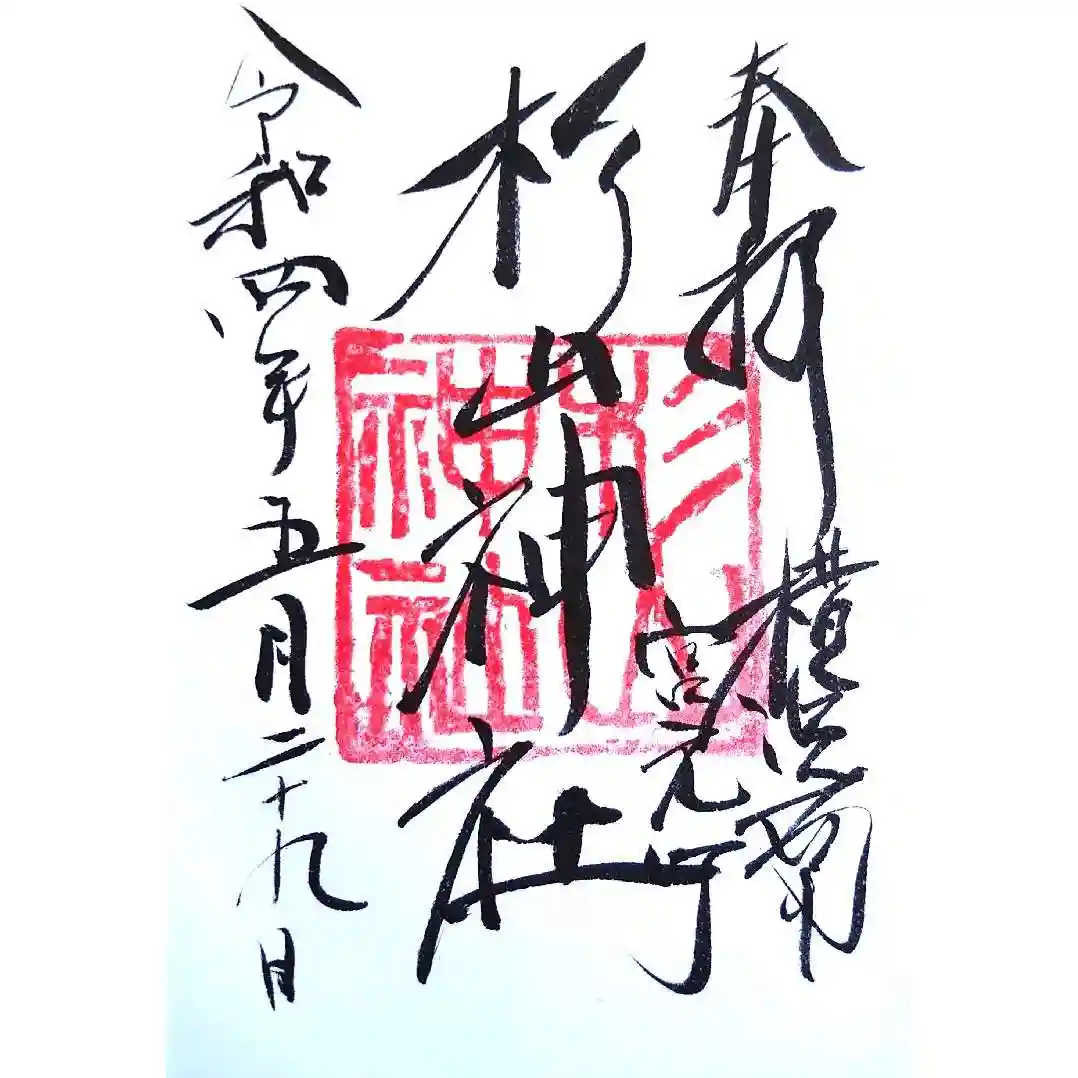 奉拝
横浜市
宮元町
杉山神社
杉山
神社
令和四年五月二十九日